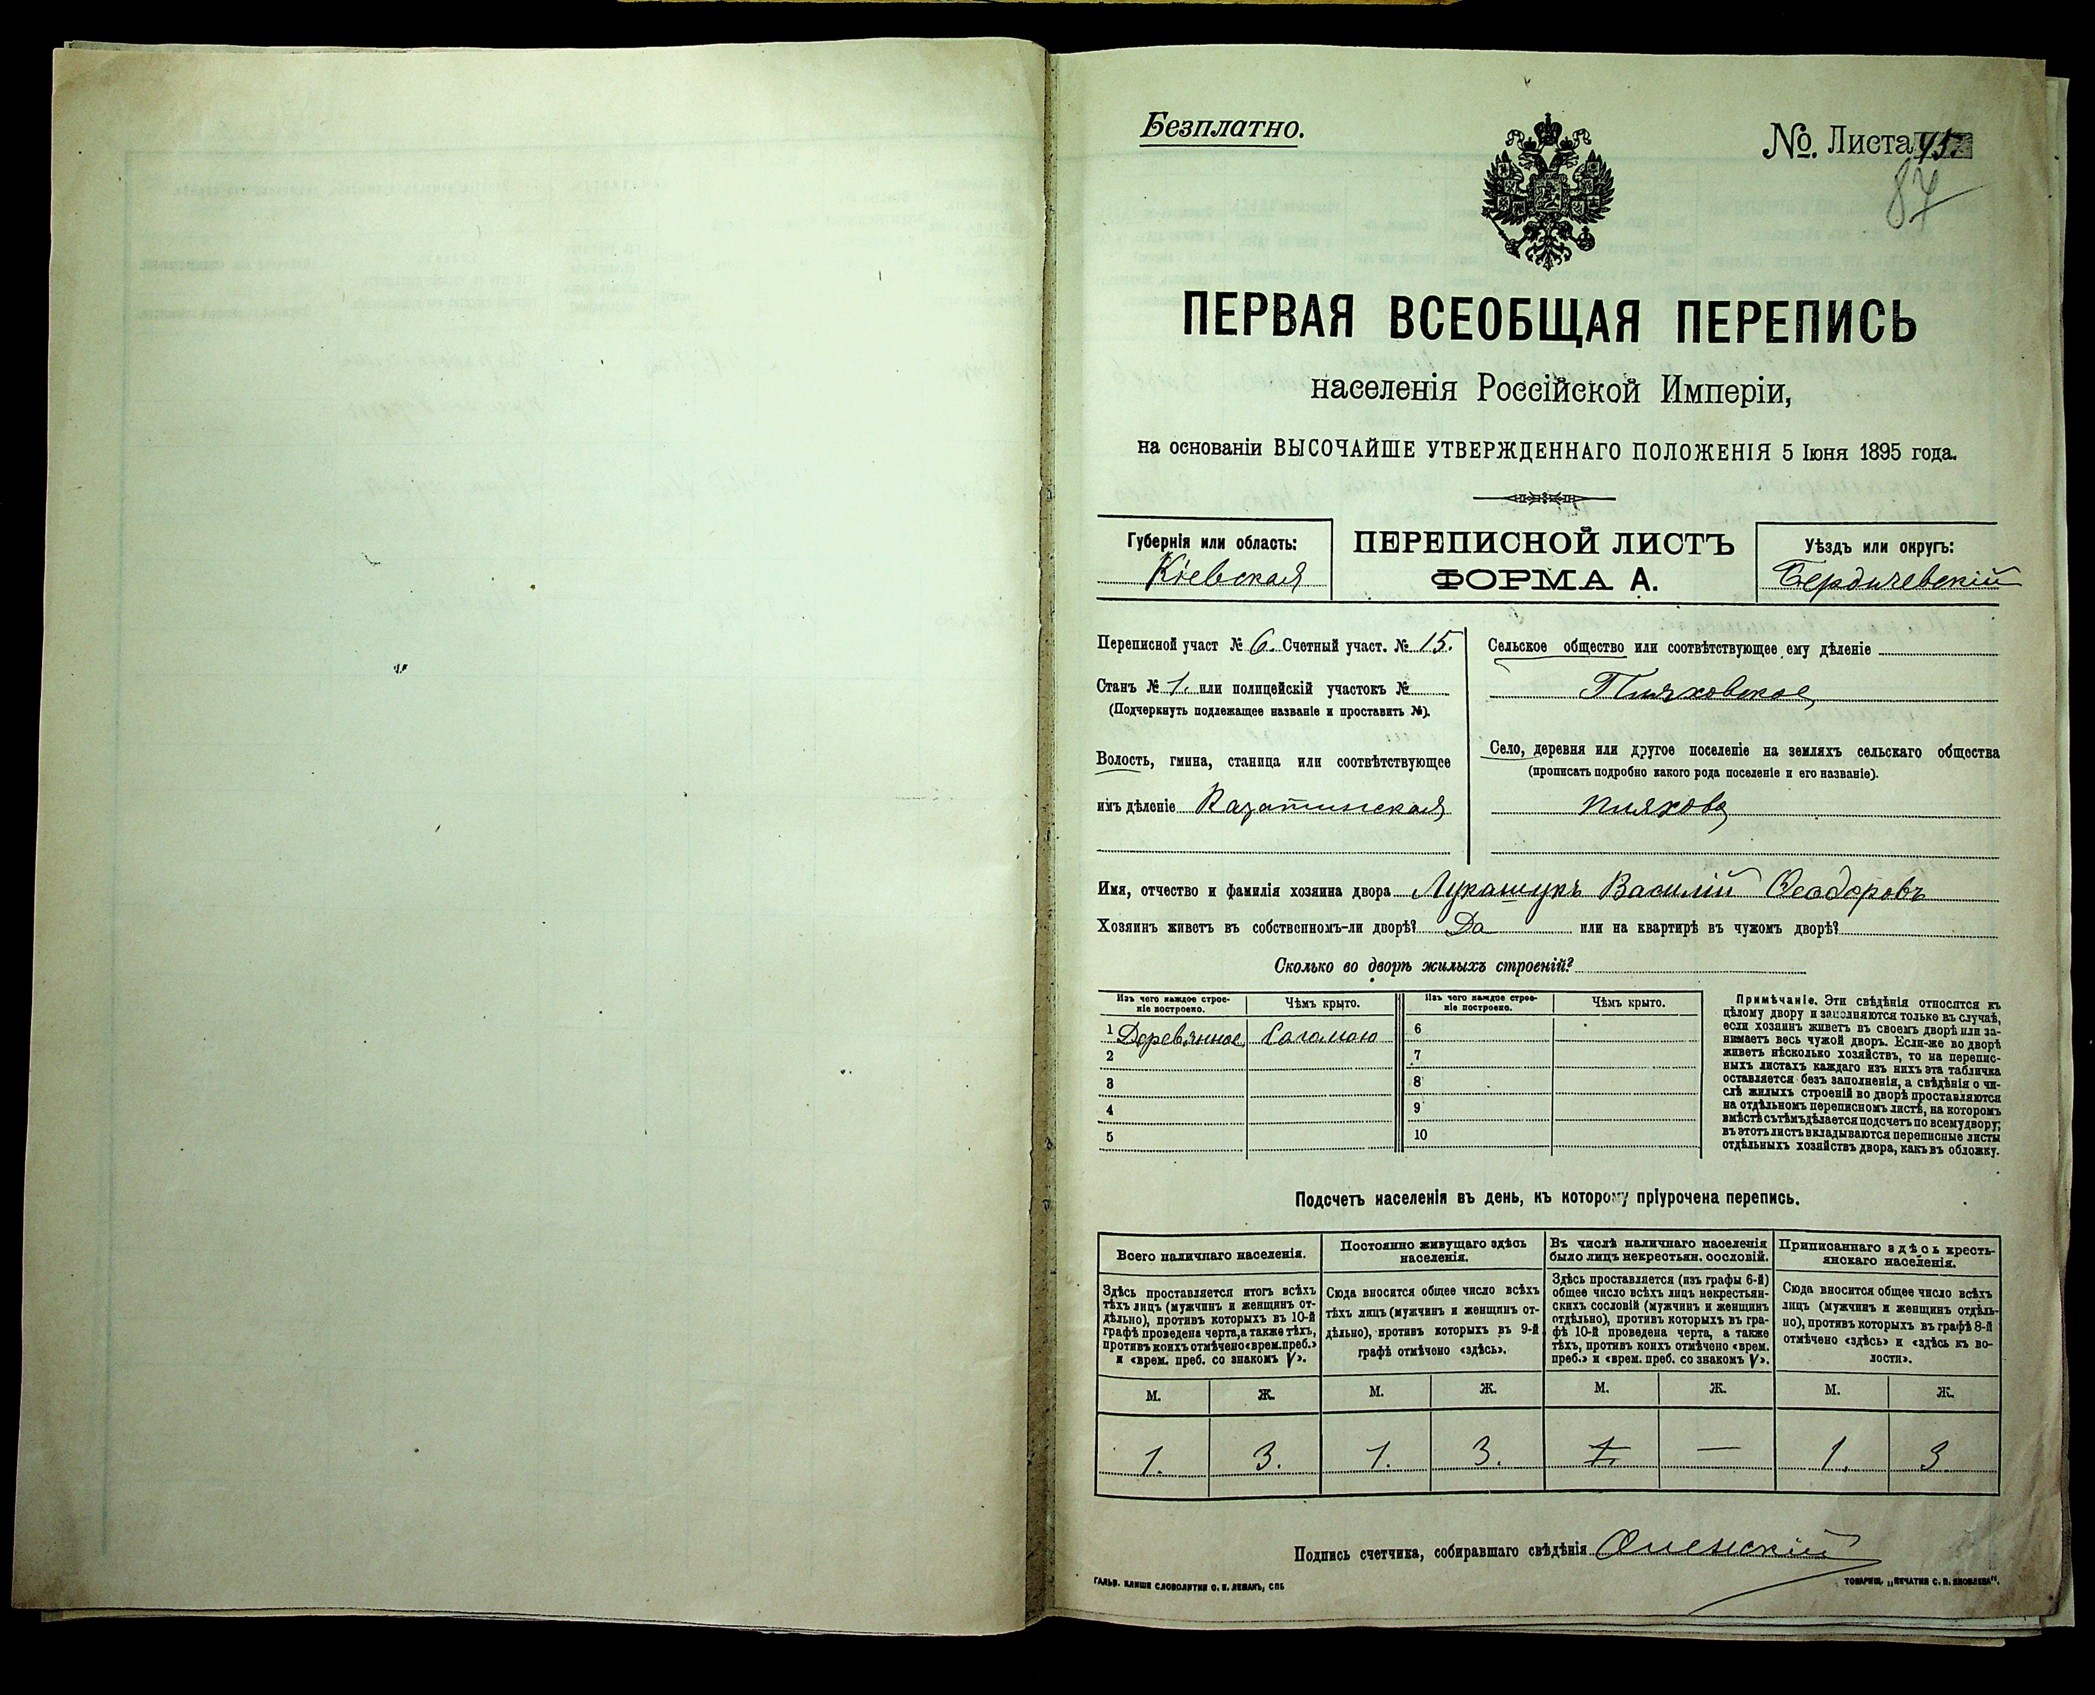 Безплатно.
№. Листа 45.
87
ПЕРВАЯ ВСЕОБЩАЯ ПЕРЕПИСЬ
населенія Россійской Имперіи,
на основаніи ВЫСОЧАЙШЕ УТВЕРЖДЕННАГО ПОЛОЖЕНІЯ 5 Іюня 1895 года.
Губернія или область:
Кіевская
ПЕРЕПИСНОЙ ЛИСТЪ
ФОРМА А.
Уѣздъ или округъ:
Бердичевскій
Переписной участ № 6. Счетный участ. № 15.
Станъ № 1. или полицейскій участокъ №
(Подчеркнуть подлежащее названіе и проставить №).
Волость, гмина, станица или соотвѣтствующее
имъ дѣленіе Казатинская
Сельское общество или соотвѣтствующее ему дѣленіе
Пляховское
Село, деревня или другое поселеніе на земляхъ сельскаго общества
(прописать подробно какого рода поселеніе и его названіе).
Пляхова
Имя, отчество и фамилія хозяина двора Лукашукъ Василій Ѳеодоровъ
Хозяинъ живетъ въ собственномъ-ли дворѣ? Да или на квартирѣ въ чужомъ дворѣ?
Сколько во дворѣ жилыхъ строеній?
Изъ чего каждое строе-
ніе построено.
Чѣмъ крыто.
1 Деревянное Соломою
2
3
4
5
Изъ чего каждое строе-
ніе построено.
Чѣмъ крыто.
6
7
8
9
10
Примѣчаніе. Эти свѣдѣнія относятся къ
цѣлому двору и заполняются только въ случаѣ,
если хозяинъ живетъ въ своемъ дворѣ или за-
нимаетъ весь чужой дворъ. Если-же во дворѣ
живетъ нѣсколько хозяйствъ, то на перепис-
ныхъ листахъ каждаго изъ нихъ эта табличка
оставляется безъ заполненія, а свѣдѣнія о чи-
слѣ жилыхъ строеній во дворѣ проставляются
на отдѣльномъ переписномъ листѣ, на которомъ
вмѣстѣ съ тѣмъ дѣлается подсчетъ по всему двору;
въ этотъ листъ вкладываются переписные листы
отдѣльныхъ хозяйствъ двора, какъ въ обложку.
Подсчетъ населенія въ день, къ которому пріурочена перепись.
Всего наличнаго населенія.
Здѣсь проставляется итогъ всѣхъ
тѣхъ лицъ (мужчинъ и женщинъ от-
дѣльно), противъ которыхъ въ 10-й
графѣ проведена черта, а также тѣхъ,
противъ коихъ отмѣчено «врем. преб.»
и «врем. преб. со знакомъ V».
М. Ж.
1. 3.
Постоянно живущаго здѣсь
населенія.
Сюда вносится общее число всѣхъ
тѣхъ лицъ (мужчинъ и женщинъ от-
дѣльно), противъ которыхъ въ 9-й
графѣ отмѣчено «здѣсь».
М. Ж.
1. 3.
Въ числѣ наличнаго населенія
было лицъ некрестьян. сословій.
Здѣсь проставляется (изъ графы 6-й)
общее число всѣхъ лицъ некрестьян-
скихъ сословій (мужчинъ и женщинъ
отдѣльно), противъ которыхъ въ гра-
фѣ 10-й проведена черта, а также
тѣхъ, противъ коихъ отмѣчено «врем.
преб.» и «врем. преб. со знакомъ V».
М. Ж.
1. —
Приписаннаго здѣсь кресть-
янскаго населенія.
Сюда вносится общее число всѣхъ
лицъ (мужчинъ и женщинъ отдѣль-
но), противъ которыхъ въ графѣ 8-й
отмѣчено «здѣсь» и «здѣсь къ во-
лости».
М. Ж.
1. 3
Подпись счетчика, собиравшаго свѣдѣнія
ГАЛЬВ. КЛИШЕ СЛОВОЛИТНИ О. И. ЛЕМАНЪ, СПБ
ТОВАРИЩ. „ПЕЧАТНЯ С. П. ЯКОВЛЕВА".